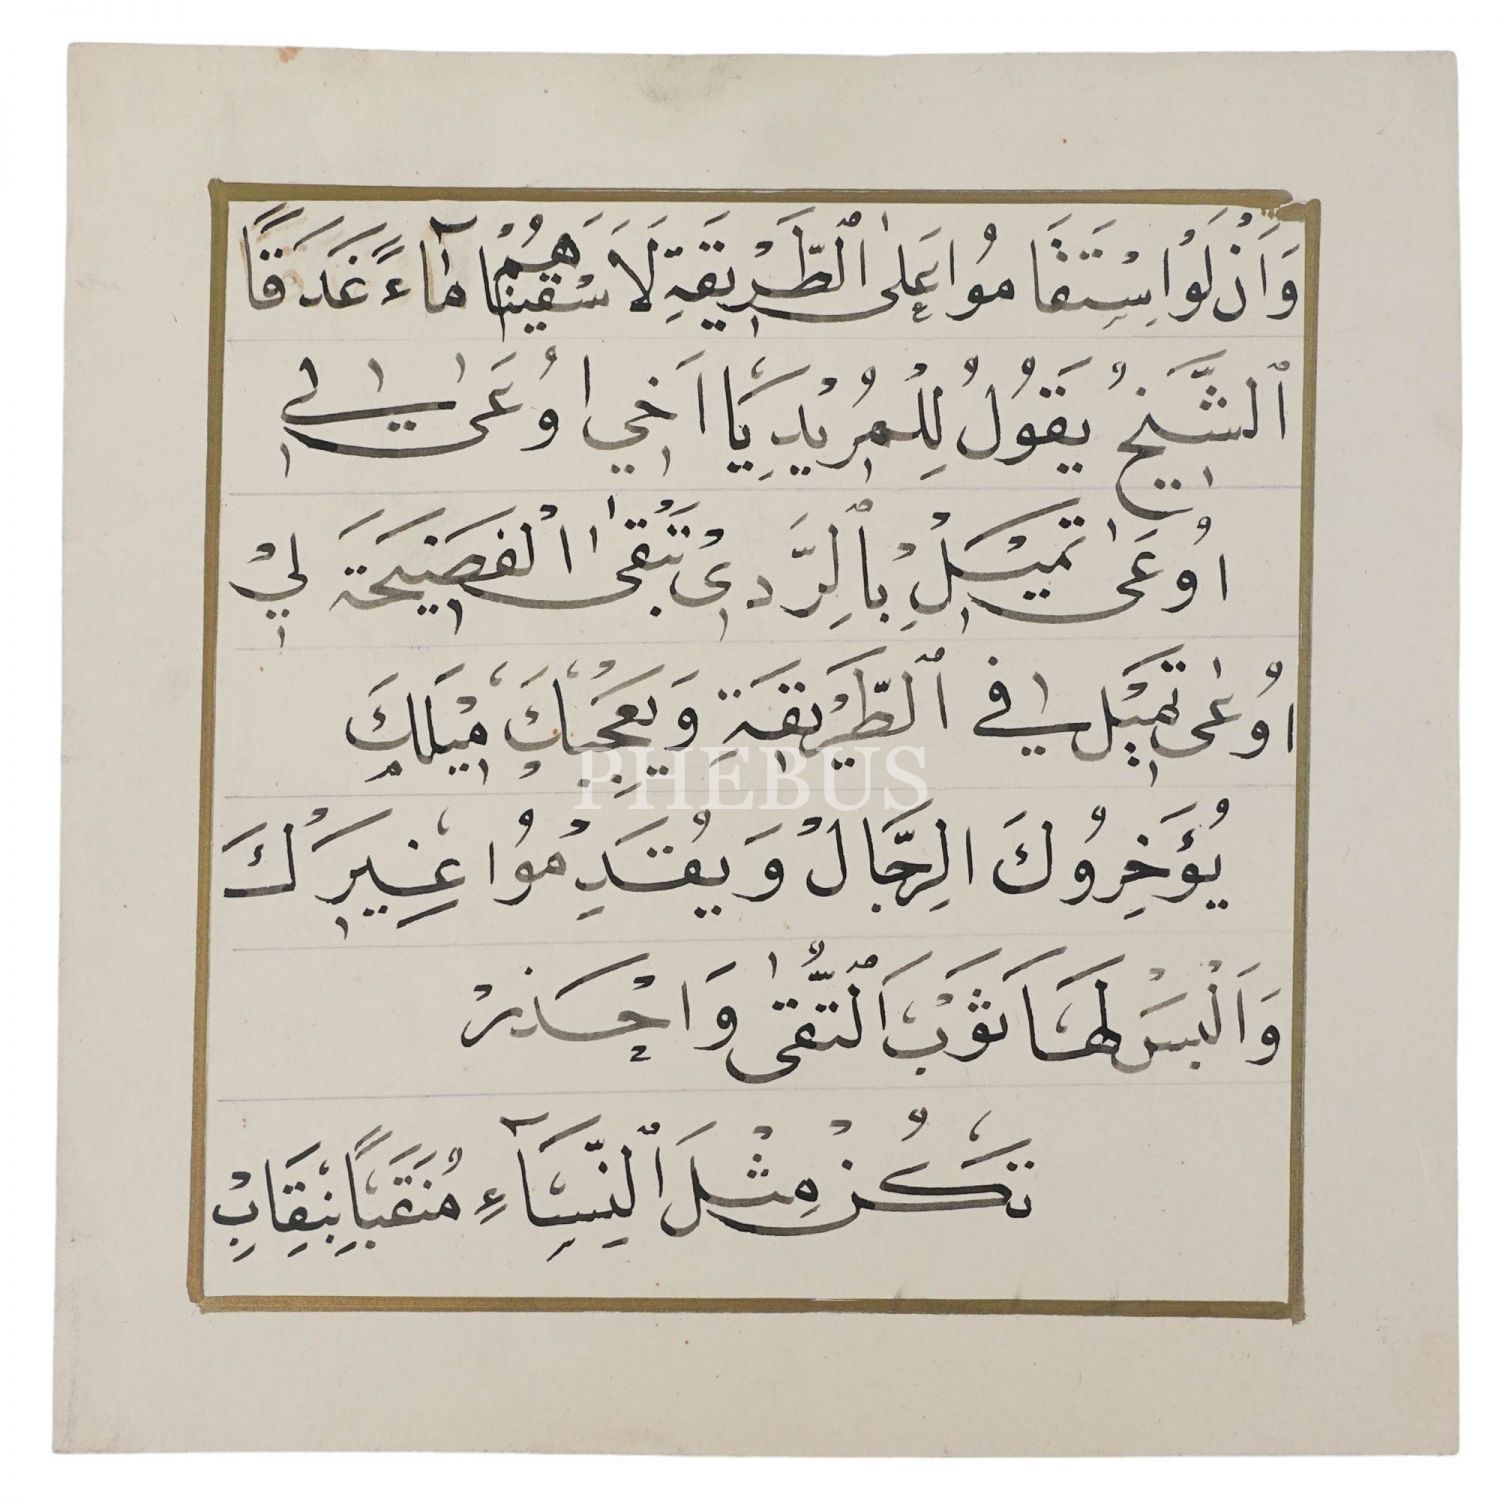 وَاَنْ لَوْ اِسْتَقَامُوا عَلَى ٱلطَّرِيقَةِ لَاَسْقَيْنَاهُمْ مَآءً غَدَقًا
ٱلشَّيْخُ يَقُولُ لِلْمُرِيْدِ يَا اَخِي اُوعَى
اُوعَى تَمِيْلْ بِالِرَّدِىْ تَبْقَى الْفَضِيحَة لِيْ
اُوعَى تَمِيْل فِي ٱلطَّرِيْقَةِ وَيَعْجِبَكَ مَيْلَكَ
يُؤَخِرُوكَ الِرِّجَالْ وَيُقَدِمُوا غِيرَكْ
وَالْبَسْ لَهَا ثَوْبَ ٱلتُّقَى وَاحْذَرْ
تَكُنْ مِثْلَ ٱلنِّسَآءِ مُنَقَبًا بِنِقَابِ
PHEBUS